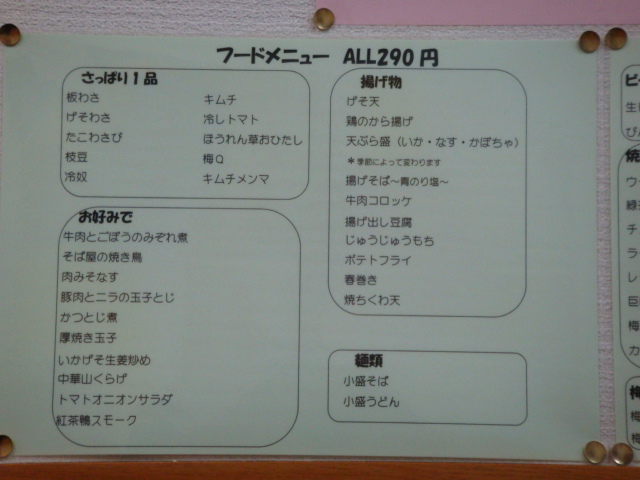 フードメニュー ALL290円
さっぱり1品
板わさ
げそわさ
たこわさび
枝豆
冷奴
キムチ
冷しトマト
ほうれん草おひたし
梅Q
キムチメンマ
お好みで
牛肉とごぼうのみぞれ煮
そば屋の焼き鳥
肉みそなす
豚肉とニラの玉子とじ
かつとじ煮
厚焼き玉子
いかげそ生姜炒め
中華山くらげ
トマトオニオンサラダ
紅茶鴨スモーク
揚げ物
げそ天
鶏のから揚げ
天ぷら盛(いか・なす・かぼちゃ)
*季節によって変わります
揚げそば~青のり塩~
牛肉コロッケ
揚げ出し豆腐
じゅうじゅうもち
ポテトフライ
春巻き
焼ちくわ天
麺類
小盛そば
小盛うどん